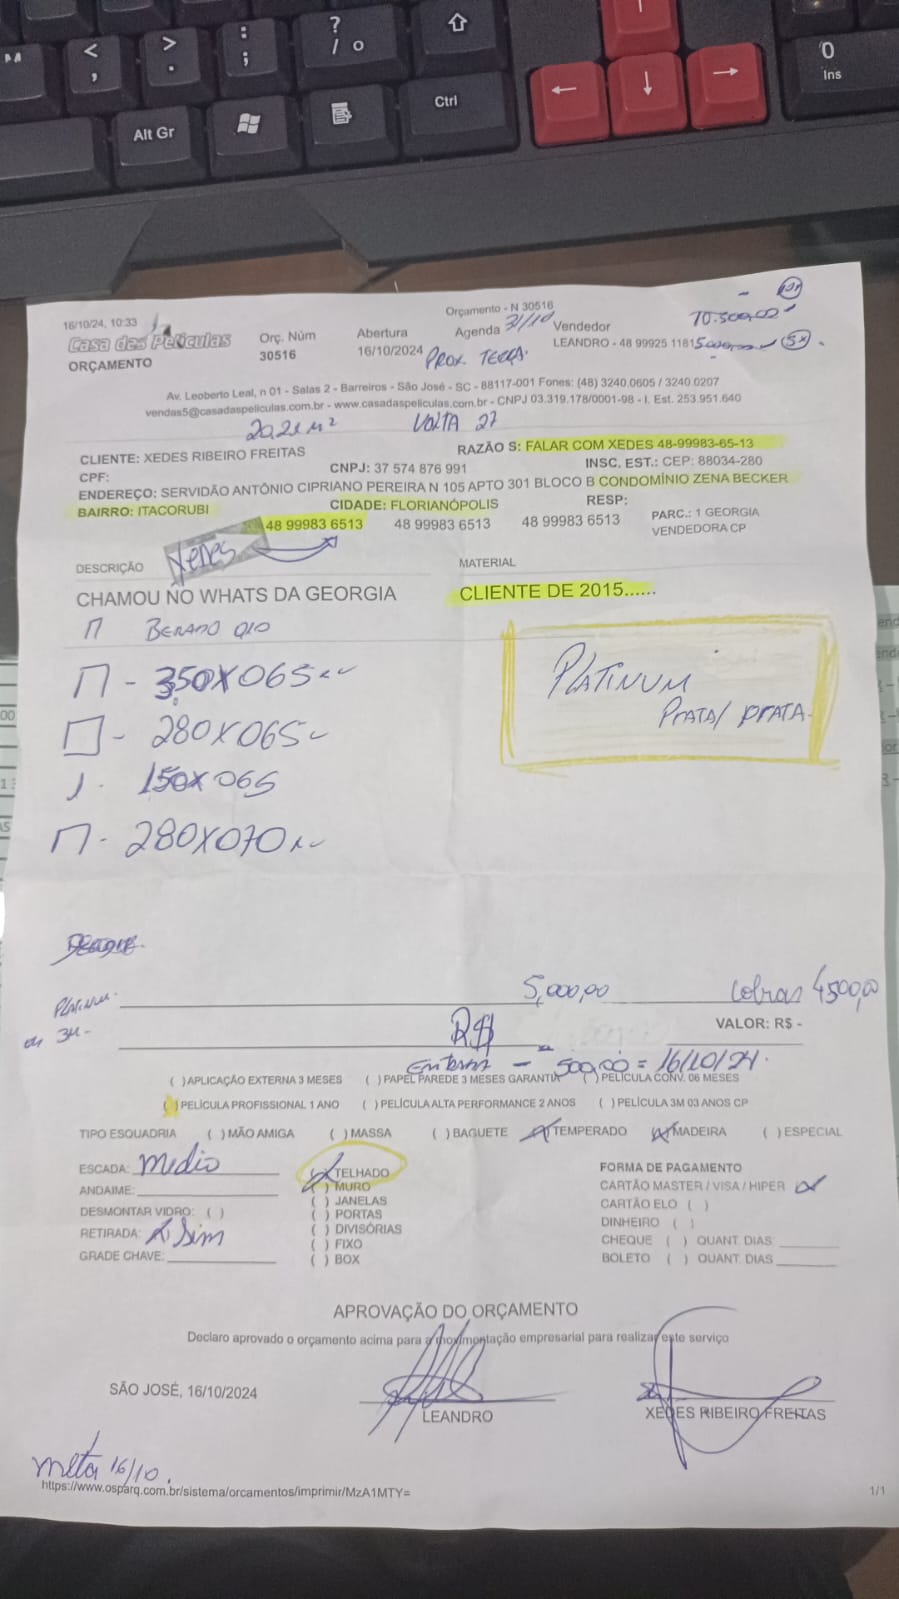 ? / O
< ,
> .
: ;
Ctrl
Alt Gr
0 Ins
16/10/24, 10:33
Orçamento - N 30516
Casa das Películas
ORÇAMENTO
Orç. Núm
30516
Abertura
16/10/2024
Agenda 31/10
PROX. TERÇA.
Vendedor
LEANDRO - 48 99925 1181
10.500,00
5x
Av. Leoberto Leal, n 01 - Salas 2 - Barreiros - São José - SC - 88117-001 Fones: (48) 3240.0605 / 3240.0207
vendas5@casadaspeliculas.com.br - www.casadaspeliculas.com.br - CNPJ 03.319.178/0001-98 - I. Est. 253.951.640
VOLTA 27
CLIENTE: XEDES RIBEIRO FREITAS
RAZÃO S: FALAR COM XEDES 48-99983-65-13
CPF:
CNPJ: 37 574 876 991
INSC. EST.: CEP: 88034-280
ENDEREÇO: SERVIDÃO ANTÔNIO CIPRIANO PEREIRA N 105 APTO 301 BLOCO B CONDOMÍNIO ZENA BECKER
BAIRRO: ITACORUBI
CIDADE: FLORIANÓPOLIS
RESP:
48 99983 6513
48 99983 6513
48 99983 6513
PARC.: 1 GEORGIA
VENDEDORA CP
Xedes
DESCRIÇÃO
MATERIAL
CHAMOU NO WHATS DA GEORGIA
CLIENTE DE 2015......
- 350X065
- 280X065
150X065
- 280X070
PLATINUM
PRATA/PRATA
PLATINUM
5,000,00
Cobras 4500,00
R$
VALOR: R$ -
Entrada - 500,00 = 16/10/24.
( )APLICAÇÃO EXTERNA 3 MESES ( )PAPEL PAREDE 3 MESES GARANTIA ( )PELÍCULA CONV. 06 MESES
( )PELÍCULA PROFISSIONAL 1 ANO ( )PELÍCULA ALTA PERFORMANCE 2 ANOS ( )PELÍCULA 3M 03 ANOS CP
TIPO ESQUADRIA ( )MÃO AMIGA ( )MASSA ( )BAGUETE (X)TEMPERADO (X)MADEIRA ( )ESPECIAL
ESCADA: medio
ANDAIME:
DESMONTAR VIDRO: ( )
RETIRADA: X Sim
GRADE CHAVE:
(X)TELHADO
( )MURO
( )JANELAS
( )PORTAS
( )DIVISÓRIAS
( )FIXO
( )BOX
FORMA DE PAGAMENTO
CARTÃO MASTER / VISA / HIPER X
CARTÃO ELO ( )
DINHEIRO ( )
CHEQUE ( ) QUANT. DIAS
BOLETO ( ) QUANT. DIAS
APROVAÇÃO DO ORÇAMENTO
Declaro aprovado o orçamento acima para a movimentação empresarial para realizar este serviço
SÃO JOSÉ, 16/10/2024
LEANDRO
XEDES RIBEIRO FREITAS
meta 16/10.
https://www.osparq.com.br/sistema/orcamentos/imprimir/MzA1MTY=
1/1